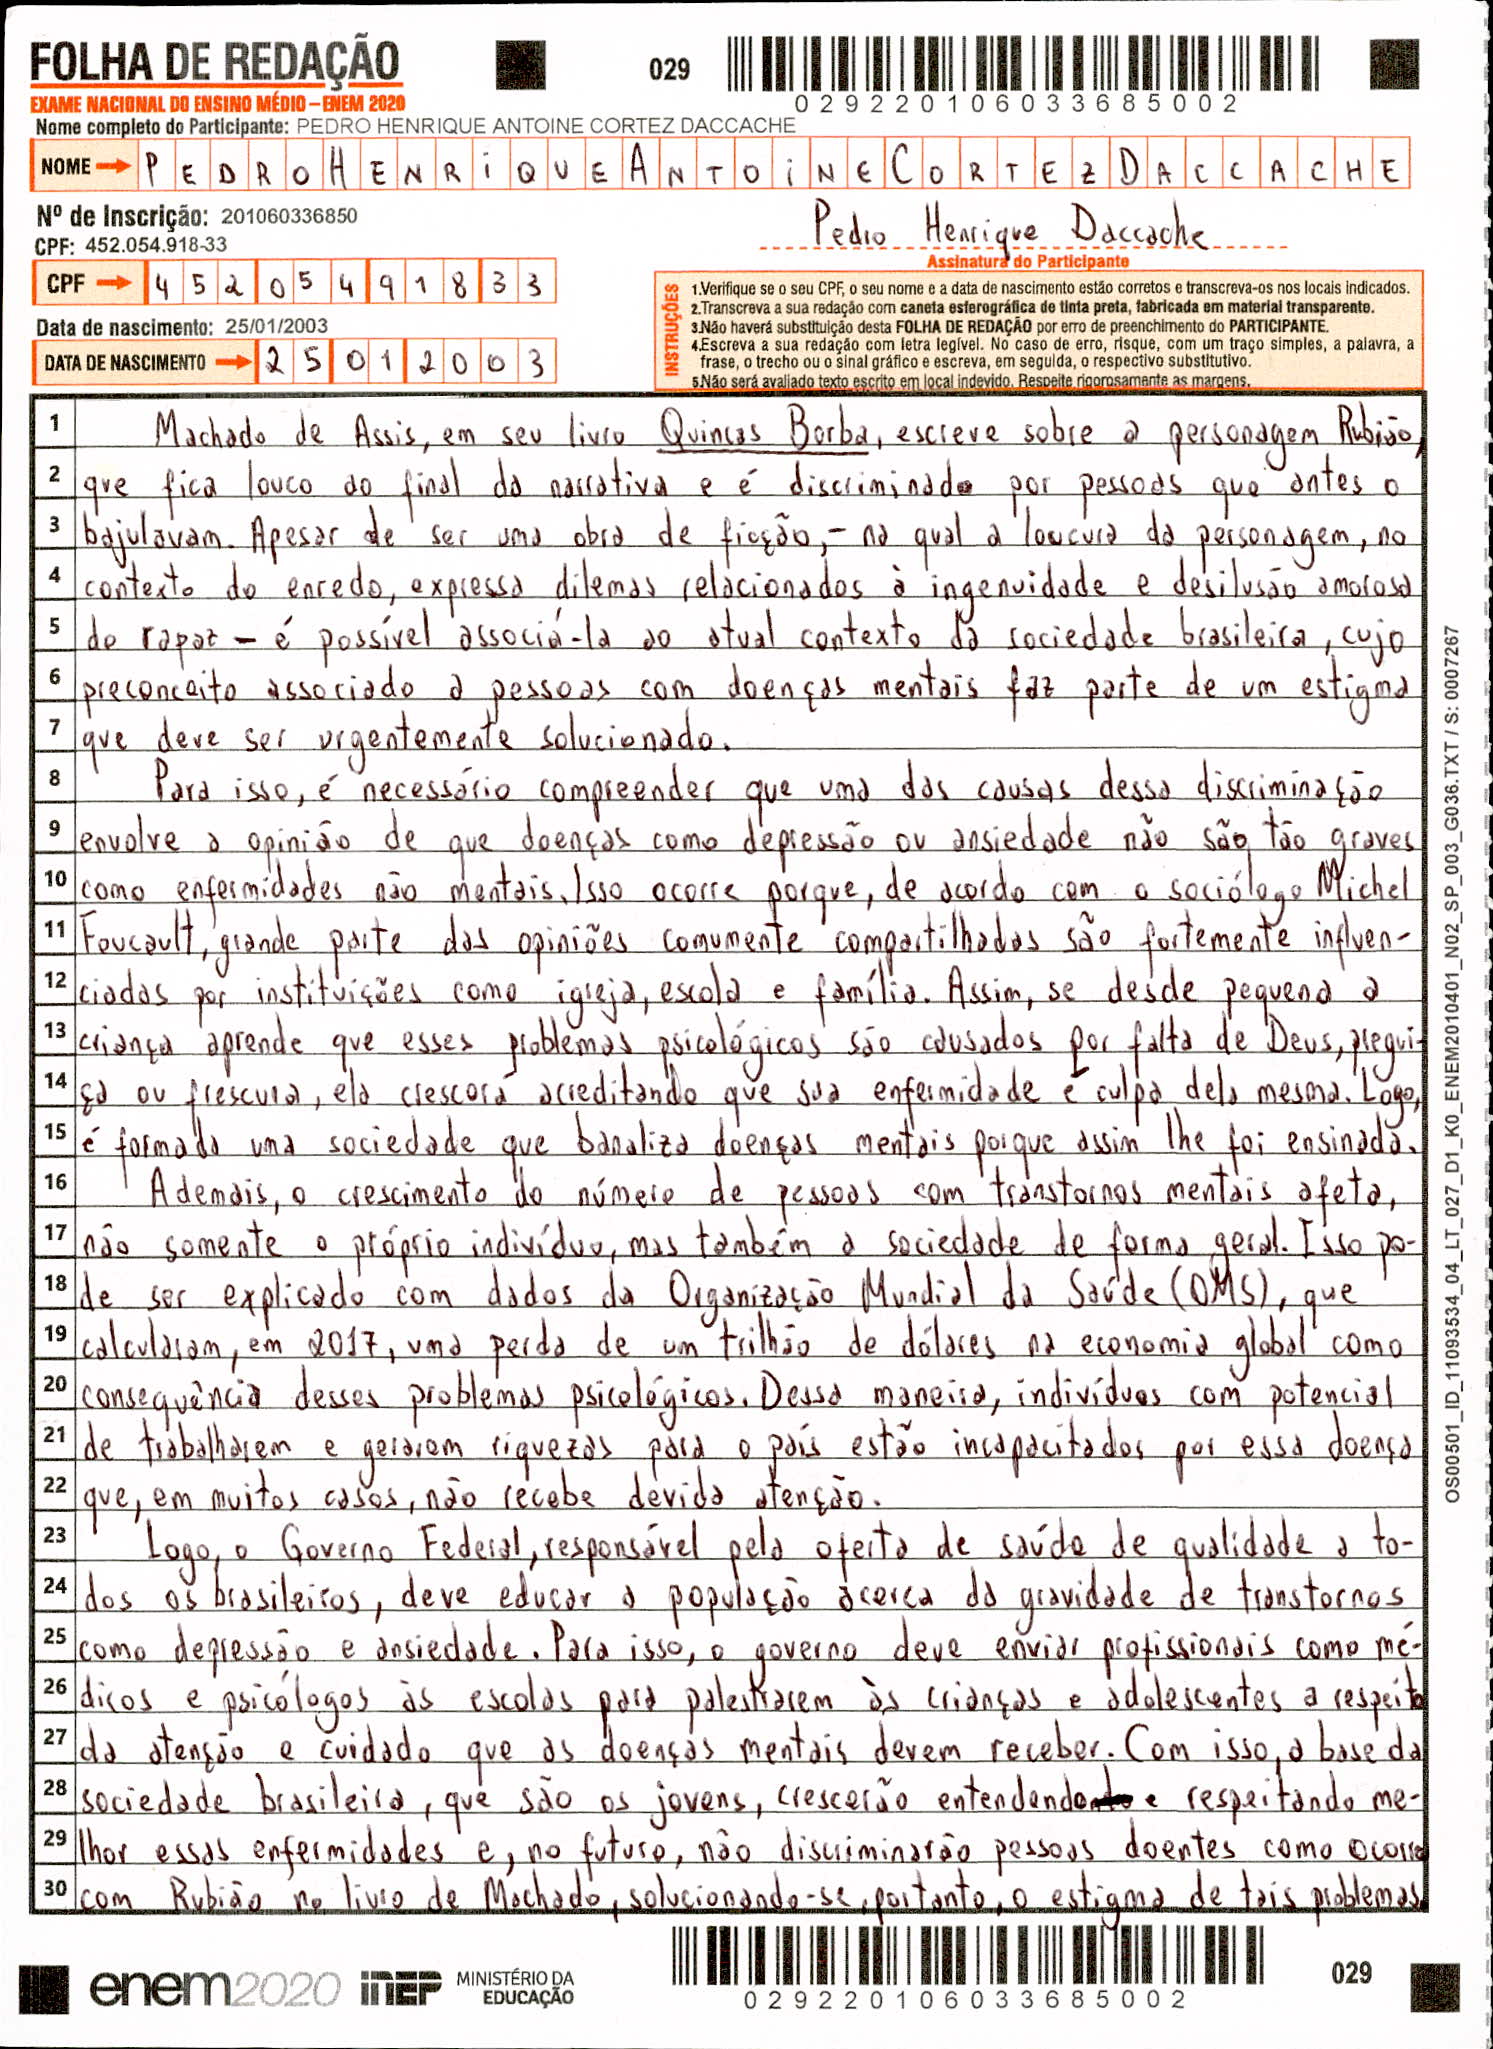 FOLHA DE REDAÇÃO
EXAME NACIONAL DO ENSINO MÉDIO – ENEM 2020
029
0292201060336850​02
Nome completo do Participante: PEDRO HENRIQUE ANTOINE CORTEZ DACCACHE
NOME PEDROHENRIQUEANTOINECORTEZDACCACHE
Nº de Inscrição: 201060336850
CPF: 452.054.918-33
Pedro Henrique Daccache
Assinatura do Participante
CPF 45205491833
Data de nascimento: 25/01/2003
DATA DE NASCIMENTO 25012003
INSTRUÇÕES
1.Verifique se o seu CPF, o seu nome e a data de nascimento estão corretos e transcreva-os nos locais indicados.
2.Transcreva a sua redação com caneta esferográfica de tinta preta, fabricada em material transparente.
3.Não haverá substituição desta FOLHA DE REDAÇÃO por erro de preenchimento do PARTICIPANTE.
4.Escreva a sua redação com letra legível. No caso de erro, risque, com um traço simples, a palavra, a
frase, o trecho ou o sinal gráfico e escreva, em seguida, o respectivo substitutivo.
5.Não será avaliado texto escrito em local indevido. Respeite rigorosamente as margens.
1 Machado de Assis, em seu livro Quincas Borba, escreve sobre a personagem Rubião,
2 que fica louco ao final da narrativa e é discriminado por pessoas que antes o
3 bajulavam. Apesar de ser uma obra de ficção, – na qual a loucura da personagem, no
4 contexto do enredo, expressa dilemas relacionados à ingenuidade e desilusão amorosa
5 do rapaz – é possível associá-la ao atual contexto da sociedade brasileira, cujo
6 preconceito associado a pessoas com doenças mentais faz parte de um estigma
7 que deve ser urgentemente solucionado.
8 Para isso, é necessário compreender que uma das causas dessa discriminação
9 envolve a opinião de que doenças como depressão ou ansiedade não são tão graves
10 como enfermidades não mentais. Isso ocorre porque, de acordo com o sociólogo Michel
11 Foucault, grande parte das opiniões comumente compartilhadas são fortemente influen-
12 ciadas por instituições como igreja, escola e família. Assim, se desde pequena a
13 criança aprende que esses problemas psicológicos são causados por falta de Deus, pregui-
14 ça ou frescura, ela crescerá acreditando que sua enfermidade é culpa dela mesma. Logo,
15 é formada uma sociedade que banaliza doenças mentais porque assim lhe foi ensinada.
16 Ademais, o crescimento do número de pessoas com transtornos mentais afeta,
17 não somente o próprio indivíduo, mas também a sociedade de forma geral. Isso po-
18 de ser explicado com dados da Organização Mundial da Saúde (OMS), que
19 calcularam, em 2017, uma perda de um trilhão de dólares na economia global como
20 consequência desses problemas psicológicos. Dessa maneira, indivíduos com potencial
21 de trabalharem e gerarem riquezas para o país estão incapacitados por essa doença
22 que, em muitos casos, não recebe devida atenção.
23 Logo, o Governo Federal, responsável pela oferta de saúde de qualidade a to-
24 dos os brasileiros, deve educar a população acerca da gravidade de transtornos
25 como depressão e ansiedade. Para isso, o governo deve enviar profissionais como mé-
26 dicos e psicólogos às escolas para palestrarem às crianças e adolescentes a respeito
27 da atenção e cuidado que as doenças mentais devem receber. Com isso, a base da
28 sociedade brasileira, que são os jovens, crescerão entendendo e respeitando me-
29 lhor essas enfermidades e, no futuro, não discriminarão pessoas doentes como ocorre
30 com Rubião no livro de Machado, solucionando-se, portanto, o estigma de tais problemas.
OS00501_ID_11093534_04_LT_027_D1_K0_ENEM2010401_N02_SP_003_G036.TXT / S: 0007267
enem2020 inep MINISTÉRIO DA
EDUCAÇÃO
029220106033685002
029